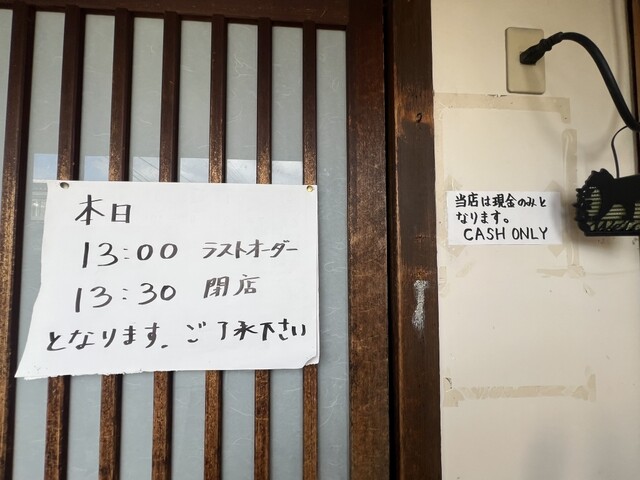 本日
13:00 ラストオーダー
13:30 閉店
となります。ご了承下さい
当店は現金のみと
なります。
CASH ONLY